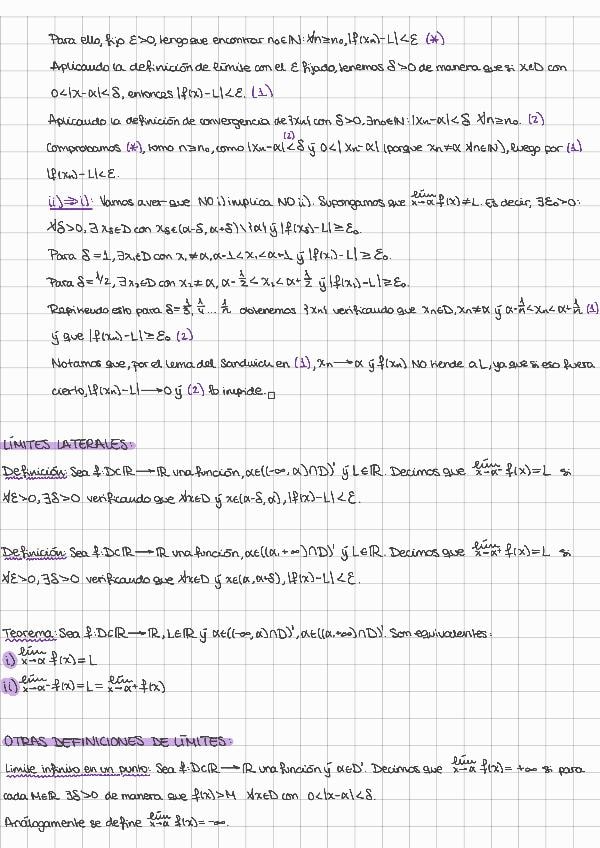 Para ello, fijo ε>0, tengo que encontrar n₀∈ℕ: ∀n≥n₀, |f(xₙ)-L|<ε (*)
Aplicando la definición de límite con el ε fijado, tenemos δ>0 de manera que si x∈D con
0<|x-α|<δ, entonces |f(x)-L|<ε. (1)
Aplicando la definición de convergencia de {xₙ} con δ>0, ∃n₀∈ℕ: |xₙ-α|<δ ∀n≥n₀. (2)
Comprobamos (*), tomo n≥n₀, como |xₙ-α| <^(2) δ y 0<|xₙ-α| (porque xₙ≠α ∀n∈ℕ), luego por (1)
|f(xₙ)-L|<ε.
ii)⇒i): Vamos a ver que NO i) implica NO ii). Supongamos que lím_{x→α} f(x)≠L. Es decir, ∃ε₀>0:
∀δ>0, ∃ x_δ∈D con x_δ∈(α-δ, α+δ)\{α} y |f(x_δ)-L|≥ε₀.
Para δ=1, ∃x₁∈D con x₁≠α, α-1<x₁<α+1 y |f(x₁)-L|≥ε₀.
Para δ=1/2, ∃x₂∈D con x₂≠α, α-1/2<x₂<α+1/2 y |f(x₂)-L|≥ε₀.
Repitiendo esto para δ=1/3, 1/4 ... 1/n obtenemos {xₙ} verificando que xₙ∈D, xₙ≠α y α-1/n<xₙ<α+1/n (1)
y que |f(xₙ)-L|≥ε₀ (2)
Notamos que, por el lema del Sandwich en (1), xₙ→α y f(xₙ) NO tiende a L, ya que si eso fuera
cierto, |f(xₙ)-L|→0 y (2) lo impide. □
LÍMITES LATERALES:
Definición: Sea f:D⊂ℝ→ℝ una función, α∈((-∞, α)∩D)' y L∈ℝ. Decimos que lím_{x→α⁻} f(x)=L si
∀ε>0, ∃δ>0 verificando que ∀x∈D y x∈(α-δ, α), |f(x)-L|<ε.
Definición: Sea f:D⊂ℝ→ℝ una función, α∈((α, +∞)∩D)' y L∈ℝ. Decimos que lím_{x→α⁺} f(x)=L si
∀ε>0, ∃δ>0 verificando que ∀x∈D y x∈(α, α+δ), |f(x)-L|<ε.
Teorema: Sea f:D⊂ℝ→ℝ, L∈ℝ y α∈((-∞, α)∩D)', α∈((α, +∞)∩D)'. Son equivalentes:
i) lím_{x→α} f(x)=L
ii) lím_{x→α⁻} f(x)=L= lím_{x→α⁺} f(x)
OTRAS DEFINICIONES DE LÍMITES:
Límite infinito en un punto: Sea f:D⊂ℝ→ℝ una función y α∈D'. Decimos que lím_{x→α} f(x)=+∞ si para
cada M∈ℝ ∃δ>0 de manera que f(x)>M ∀x∈D con 0<|x-α|<δ.
Análogamente se define lím_{x→α} f(x)=-∞.